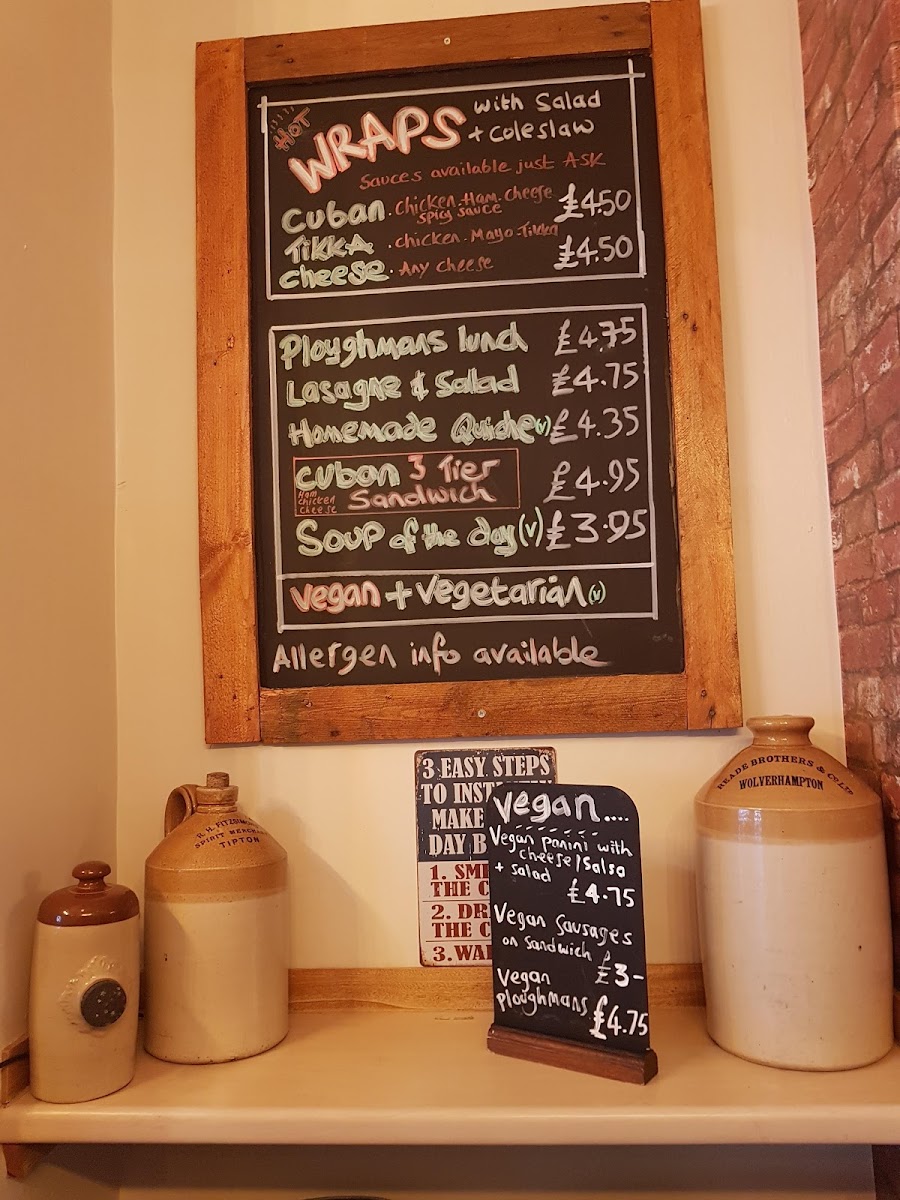 HOT
WRAPS
with Salad
+ Coleslaw
Sauces available just ASK
Cuban . chicken. Ham. cheese £4.50
spicy sauce
TIKKA . chicken. Mayo. Tikka £4.50
cheese . Any cheese
Ploughmans lunch £4.75
Lasagne & Salad £4.75
Homemade Quiche (v) £4.35
Cuban 3 Tier £4.95
Ham chicken cheese
Sandwich
Soup of the day (v) £3.95
vegan + vegetarian (v)
Allergen info available
3 EASY STEPS
TO
MAKE
DAY
1.
THE
2.
THE
3.
Vegan....
Vegan panini with
cheese/Salsa
+ salad
£4.75
Vegan Sausages
on Sandwich £3-
Vegan
ploughmans £4.75
SPIRIT
TIPTON
READE BROTHERS & Co LTD
WOLVERHAMPTON